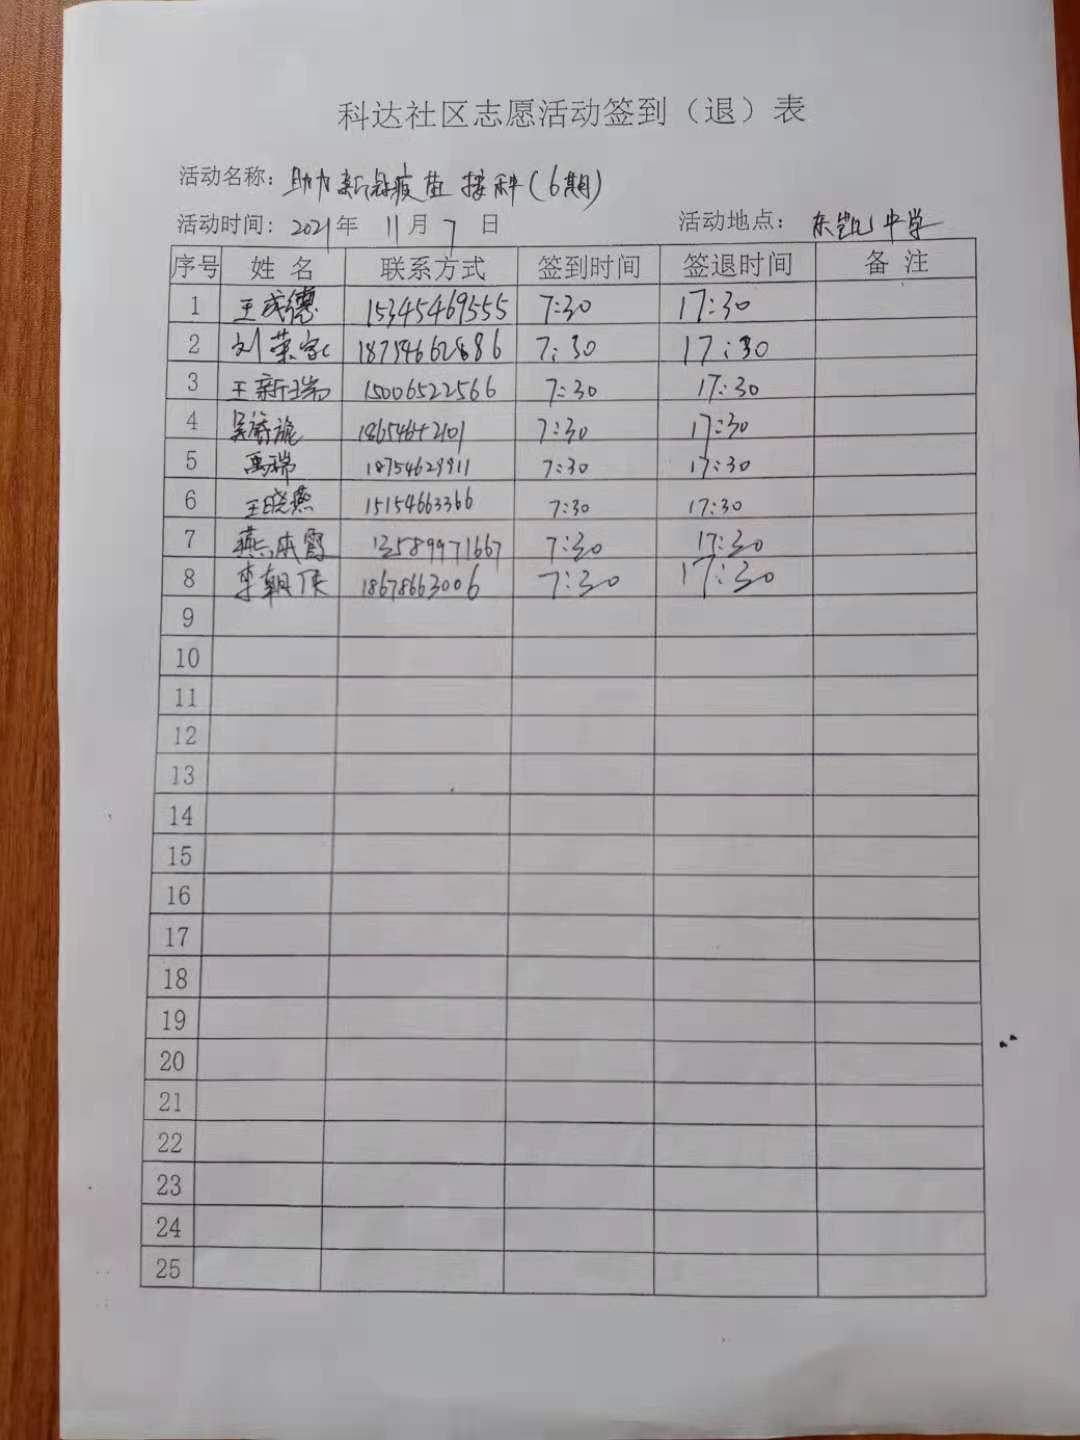 科达社区志愿活动签到（退）表
活动名称：助力新冠疫苗接种(6期)
活动时间：2021年 11月 7 日 活动地点：东凯中学
序号 姓 名 联系方式 签到时间 签退时间 备 注
1 王成德 15345469555 7:30 17:30
2 刘荣 18754662886 7:30 17:30
3 王新瑞 15006522566 7:30 17:30
4 7:30 17:30
5 禹瑞 18754629911 7:30 17:30
6 王晓燕 15154663366 7:30 17:30
7 燕本霞 13589971667 7:30 17:30
8 李朝 18678663006 7:30 17:30
9
10
11
12
13
14
15
16
17
18
19
20
21
22
23
24
25